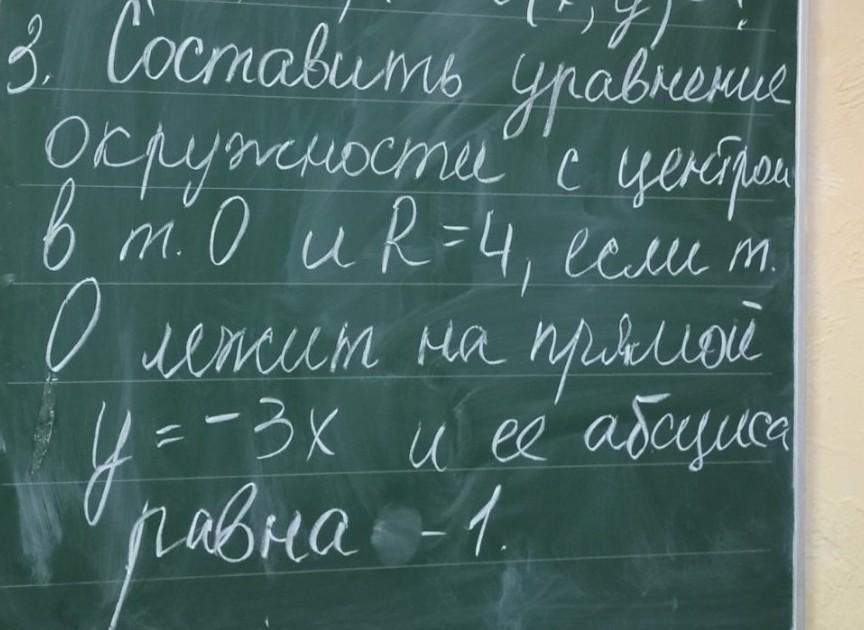 3. Составить уравнение
окружности с центром
в т. О и R=4, если т.
О лежит на прямой
y = -3x и ее абсциса
равна -1.